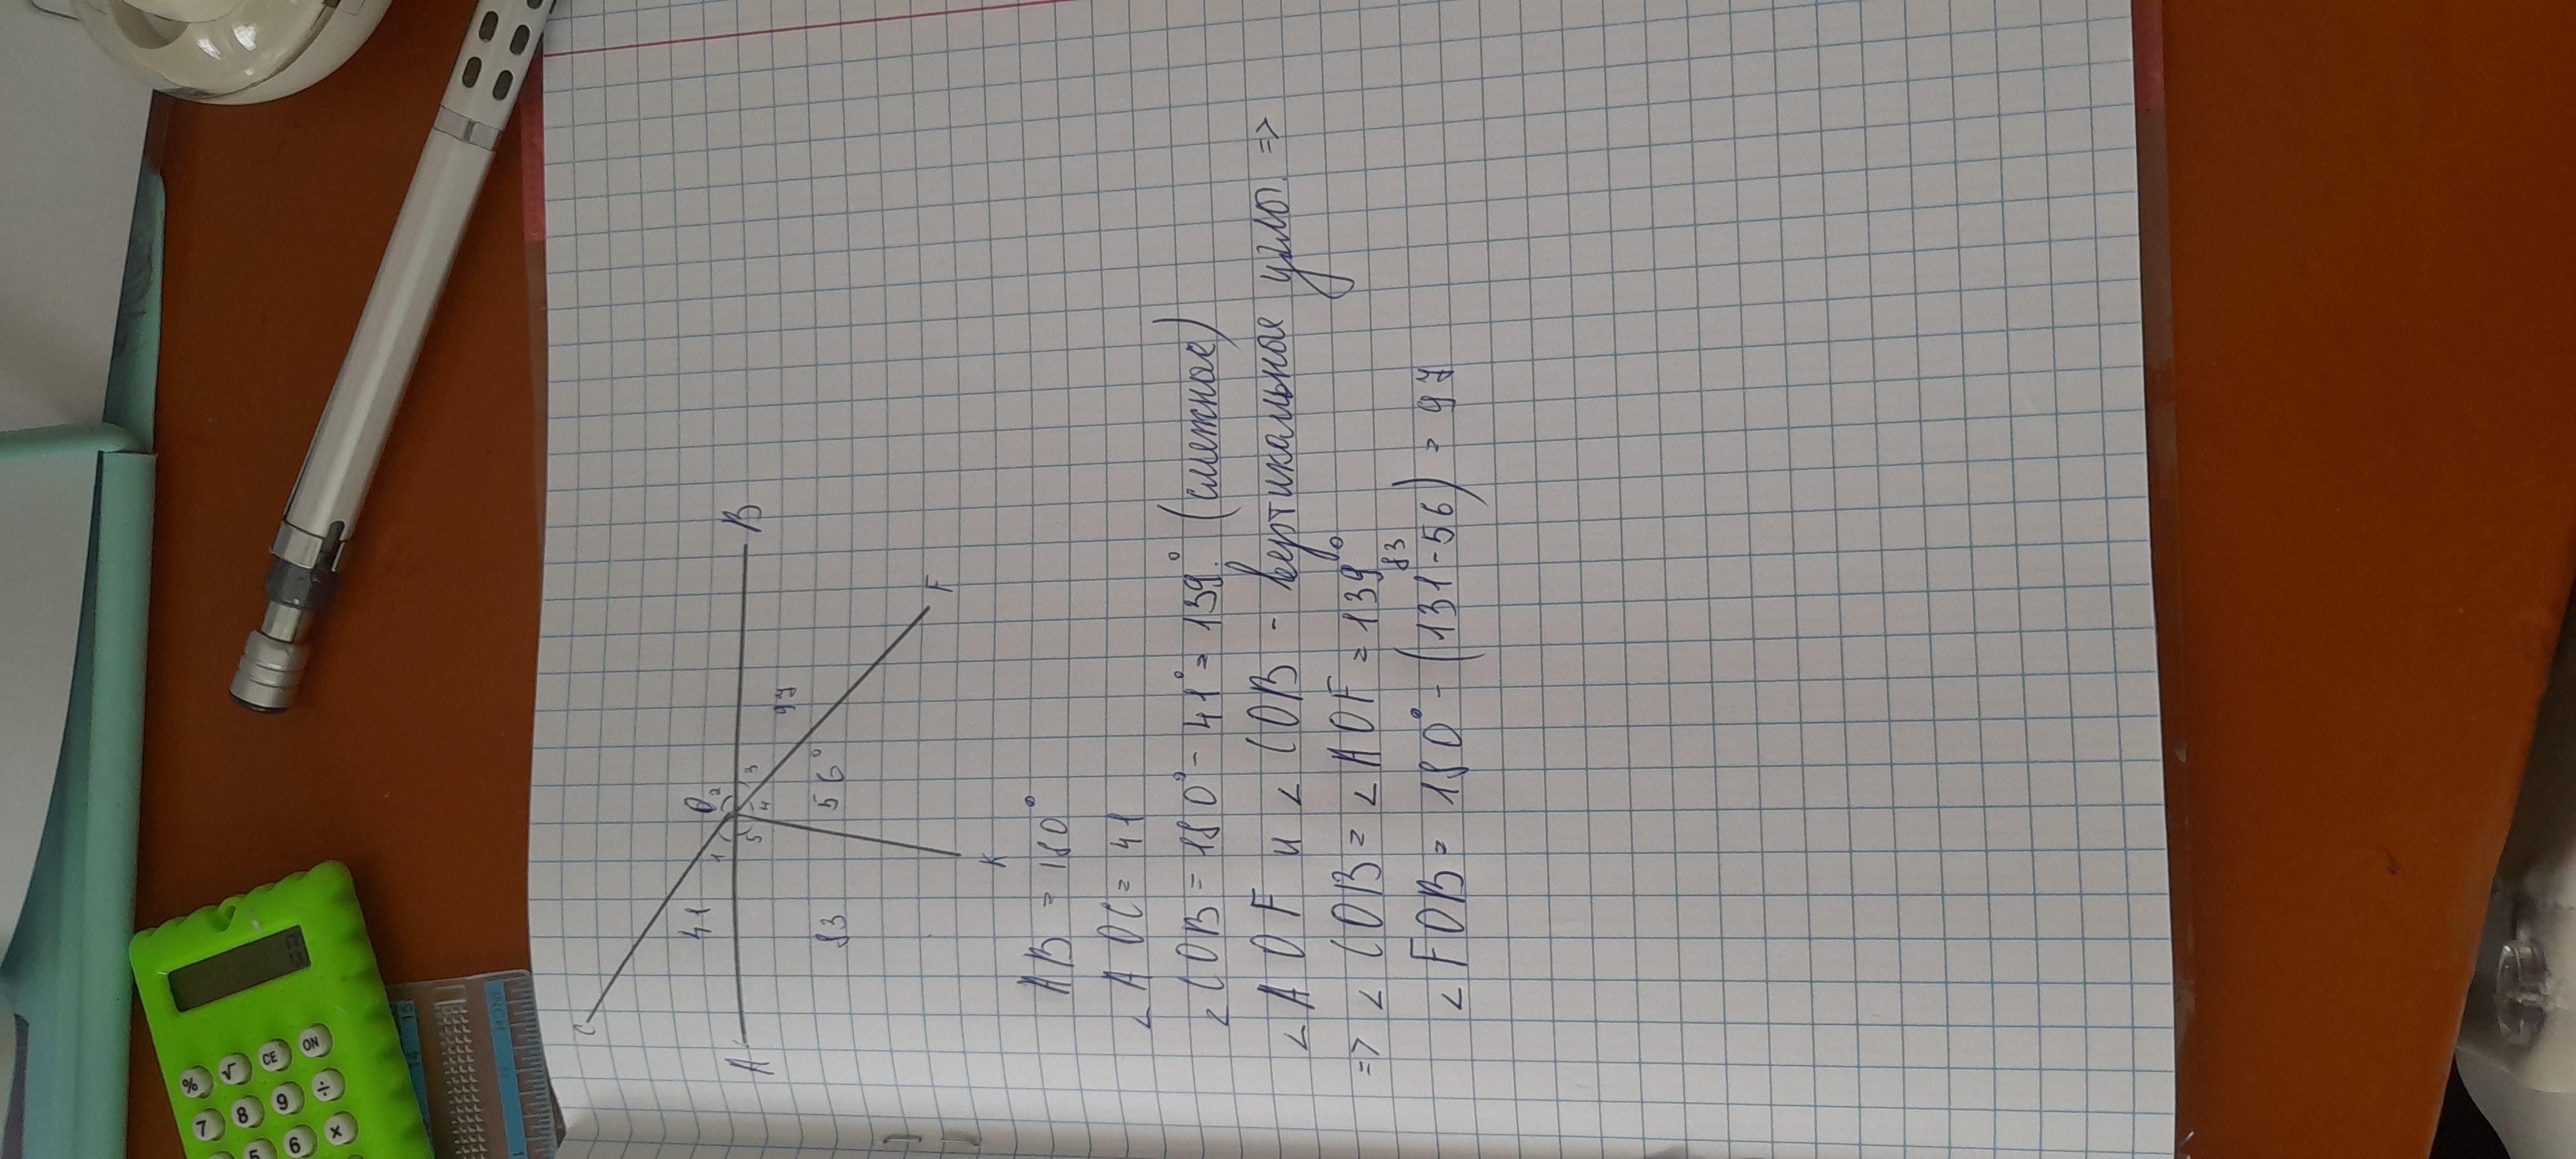 C
41
1
O
2
A
B
5
4
3
83
56°
97
K
F
AB = 180°
∠AOC = 41
∠COB = 180° - 41° = 139° (смежное)
∠AOF и ∠COB - вертикальные углы. =>
=> ∠COB = ∠AOF = 139°
83
∠FOB = 180° - (131-56) = 97
% √ CE ON
7 8 9 ÷
5 6 x
15
14